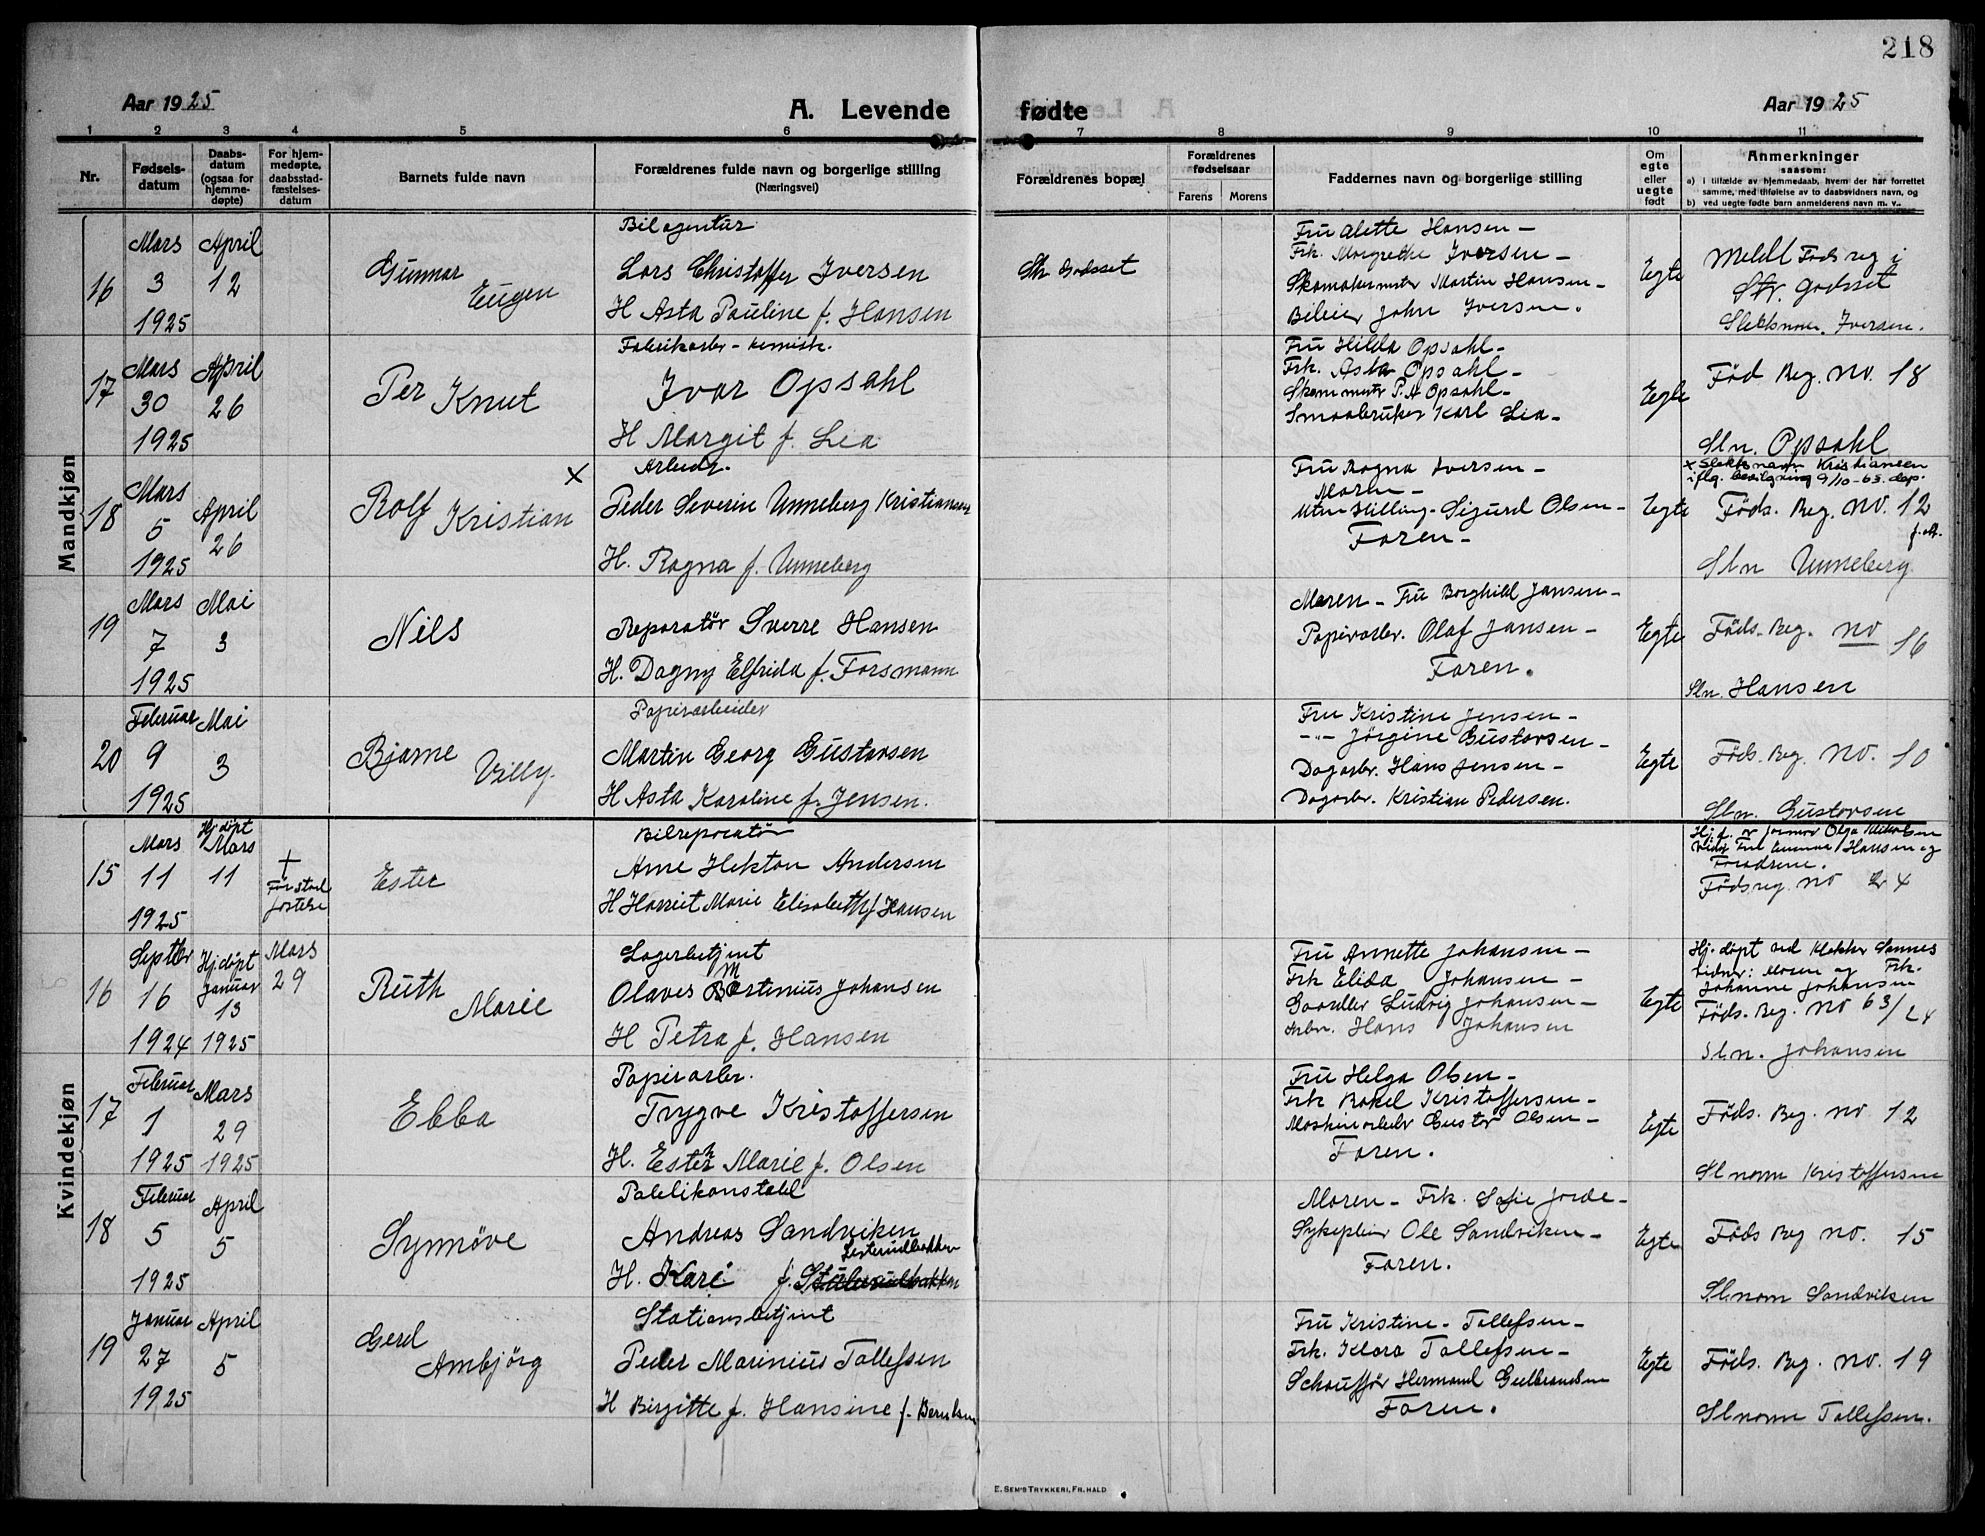 218
Aar 1925
A. Levende
fødte
Aar 1925
1 2 3 4 5 6 7 8 9 10 11
Nr.
Fødsels-
datum
Daabs-
datum
(ogsaa for
hjemme-
døpte)
For hjem-
medøpte,
daabsstad-
fæstelses-
datum
Barnets fulde navn
Forældrenes fulde navn og borgerlige stilling
(Næringsvei)
Forældrenes bopæl
Forældrenes
fødselsaar
Farens Morens
Faddernes navn og borgerlige stilling
Om
egte
eller
uegte
født
Anmerkninger
saasom:
a) i tilfælde av hjemmedaab, hvem der har forrettet
samme, med tilføielse av to daabsvidners navn, og
b) ved uegte fødte barn anmelderens navn m. v..
Mandkjøn
16
Mars
3
1925
April
12
Gunnar
Eugen
Bilagentur
Lars Christoffer Iversen
H Asta Pauline f. Hansen
Str. Godsset
Fru Alette Hansen –
Frk. Margrethe Iversen –
Skomakermstr Martin Hansen –
Bileier John Iversen.
Egte
Meldt Føds reg i
Str. Godsset
Iversen.
17
Mars
30
1925
April
26
Per Knut
Fabrikarb – kemisk.
Ivar Opsahl
H Margit f. Lea
Fru Hilda Opsahl –
Frk. Asta Opsahl –
P. A Opsahl –
Smaabruker Karl Lea –
Egte
Fød Reg. no. 18
Sln. Opsahl
18
Mars
5
1925
April
26
Rolf Kristian ×
Arbeidr.
Peder Severin Unneberg Kristiansen
H. Ragna f. Unneberg
Fru Ragna Iversen –
Moren –
Uten stilling – Sigurd Olsen –
Faren –
Egte
× Slektsnavn Kristiansen
iflg. bevilgning 9/10-63. dep.
Føds. Reg. no. 12
Sln Unneberg
19
Mars
7
1925
Mai
3
Nils
Reparatør Sverre Hansen
H. Dagny Elfrida f. Forsmann
Moren – Fru Borghild Jansen –
Papirarbr. Olaf Jansen –
Faren.
Egte
Føds. Reg. no 16
Sln. Hansen
20
Februar
9
1925
Mai
3
Bjarne
Villy.
Papirarbeider
Martin Georg Gustavsen
H Asta Karoline f. Jensen.
Fru Kristine Jensen –
–"– Jørgine Gustavsen –
Dagarbr. Hans Jensen –
Dagarbr. Kristian Pedersen.
Egte
Føds. Reg. no. 10
Sln. Gustavsen
Kvindekjøn
15
Mars
11
1925
Hj.døpt
Mars
11
†
Før stad
festelse
Ester
Bilreparatør
Arne Hekton Andersen
H Harriet Marie Elisabeth f Hansen
Hj.d. av farmor Olga
Fru Hansen og
Føds reg. no 24
16
Septbr
16
1924
Hj.døpt
Januar
13
1925
Mars
29
Ruth
Marie
Lagerbetjent
Olaves Martinius Johansen
H Petra f. Hansen
Fru Annette Johansen –
Frk Elida Johansen –
Ludvig Johansen –
Arbr. Hans Johansen
Egte
Hj. døpt ved Klokker Sannes
Vidner: Moren og Frk.
Johanne Johansen
Føds. Reg. no 63/24
Sln. Johansen
17
Februar
1
1925
Mars
29
1925
Ebba
Papirarbr.
Trygve Kristoffersen
H. Ester Marie f. Olsen
Fru Helga Olsen –
Frk Rakel Kristoffersen –
Maskinarbeidr Gustav Olsen –
Faren.
Egte
Føds. Reg. no 12
Sl navn Kristoffersen
18
Februar
5
1925
April
5
Synnøve
Andreas Sandviken
H. Kari f.
Moren – Frk. Sofie Jorde –
Sykepleier Ole Sandviken –
Faren.
Egte
Føds Reg no. 15
Sl.navn Sandviken
19
Januar
27
1925
April
5
Gerd
Arnbjørg
Stationsbetjent
Peder Marinius Tollefsen
H Birgitte f. Hansine f. Berntsen
Fru Kristine – Tollefsen –
Frk. Klara Tollefsen –
Schauffør Hermand Gulbrandsen
Faren.
Egte
Føds. Reg. no. 19
Sl navn Tollefsen.
E. SEM'S TRYKKERI, FR.HALD